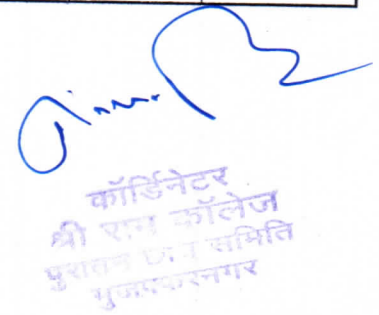 कॉर्डिनेटर
श्री राम कॉलेज
पुरातन छात्र समिति
मुजफ्फरनगर